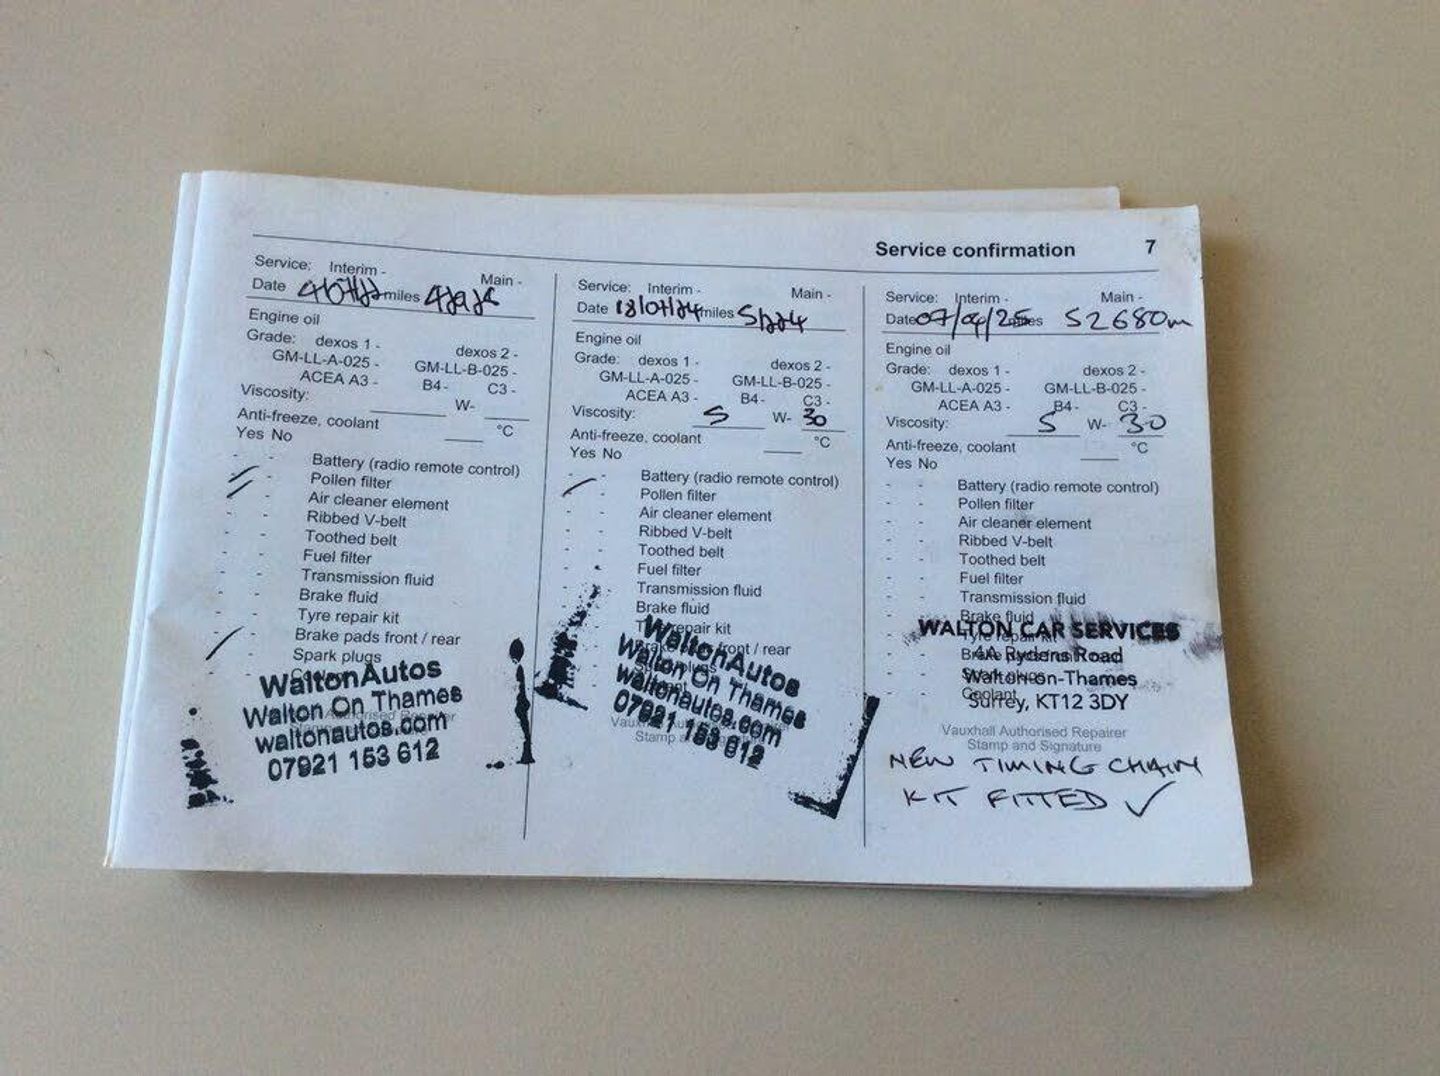 Service confirmation 7
Service: Interim - Main -
Date miles
Engine oil
Grade: dexos 1 - dexos 2 -
GM-LL-A-025 - GM-LL-B-025 -
ACEA A3 - B4 - C3 -
Viscosity: W-
Anti-freeze, coolant °C
Yes No
- - Battery (radio remote control)
- Pollen filter
- Air cleaner element
- - Ribbed V-belt
- - Toothed belt
- - Fuel filter
- - Transmission fluid
- - Brake fluid
- - Tyre repair kit
- Brake pads front / rear
- - Spark plugs
WaltonAutos
Walton On Thames
waltonautos.com
07921 153 612
Service: Interim - Main -
Date 18/07/24 miles 51224
Engine oil
Grade: dexos 1 - dexos 2 -
GM-LL-A-025 - GM-LL-B-025 -
ACEA A3 - B4 - C3 -
Viscosity: 5 W- 30
Anti-freeze, coolant °C
Yes No
- Battery (radio remote control)
- Pollen filter
- - Air cleaner element
- - Ribbed V-belt
- - Toothed belt
- - Fuel filter
- - Transmission fluid
- - Brake fluid
Tyre repair kit
Brake pads front / rear
WaltonAutos
Walton On Thames
waltonautos.com
07921 153 612
Service: Interim - Main -
Date 07/04/25 miles 52680m
Engine oil
Grade: dexos 1 - dexos 2 -
GM-LL-A-025 - GM-LL-B-025 -
ACEA A3 - B4 - C3 -
Viscosity: 5 W- 30
Anti-freeze, coolant °C
Yes No
- - Battery (radio remote control)
- - Pollen filter
- - Air cleaner element
- - Ribbed V-belt
- - Toothed belt
- - Fuel filter
- - Transmission fluid
- - Brake fluid
WALTON CAR SERVICES
4A Rydens Road
Walton-on-Thames
Coolant
Surrey, KT12 3DY
Vauxhall Authorised Repairer
Stamp and Signature
NEW TIMING CHAIN
KIT FITTED ✓